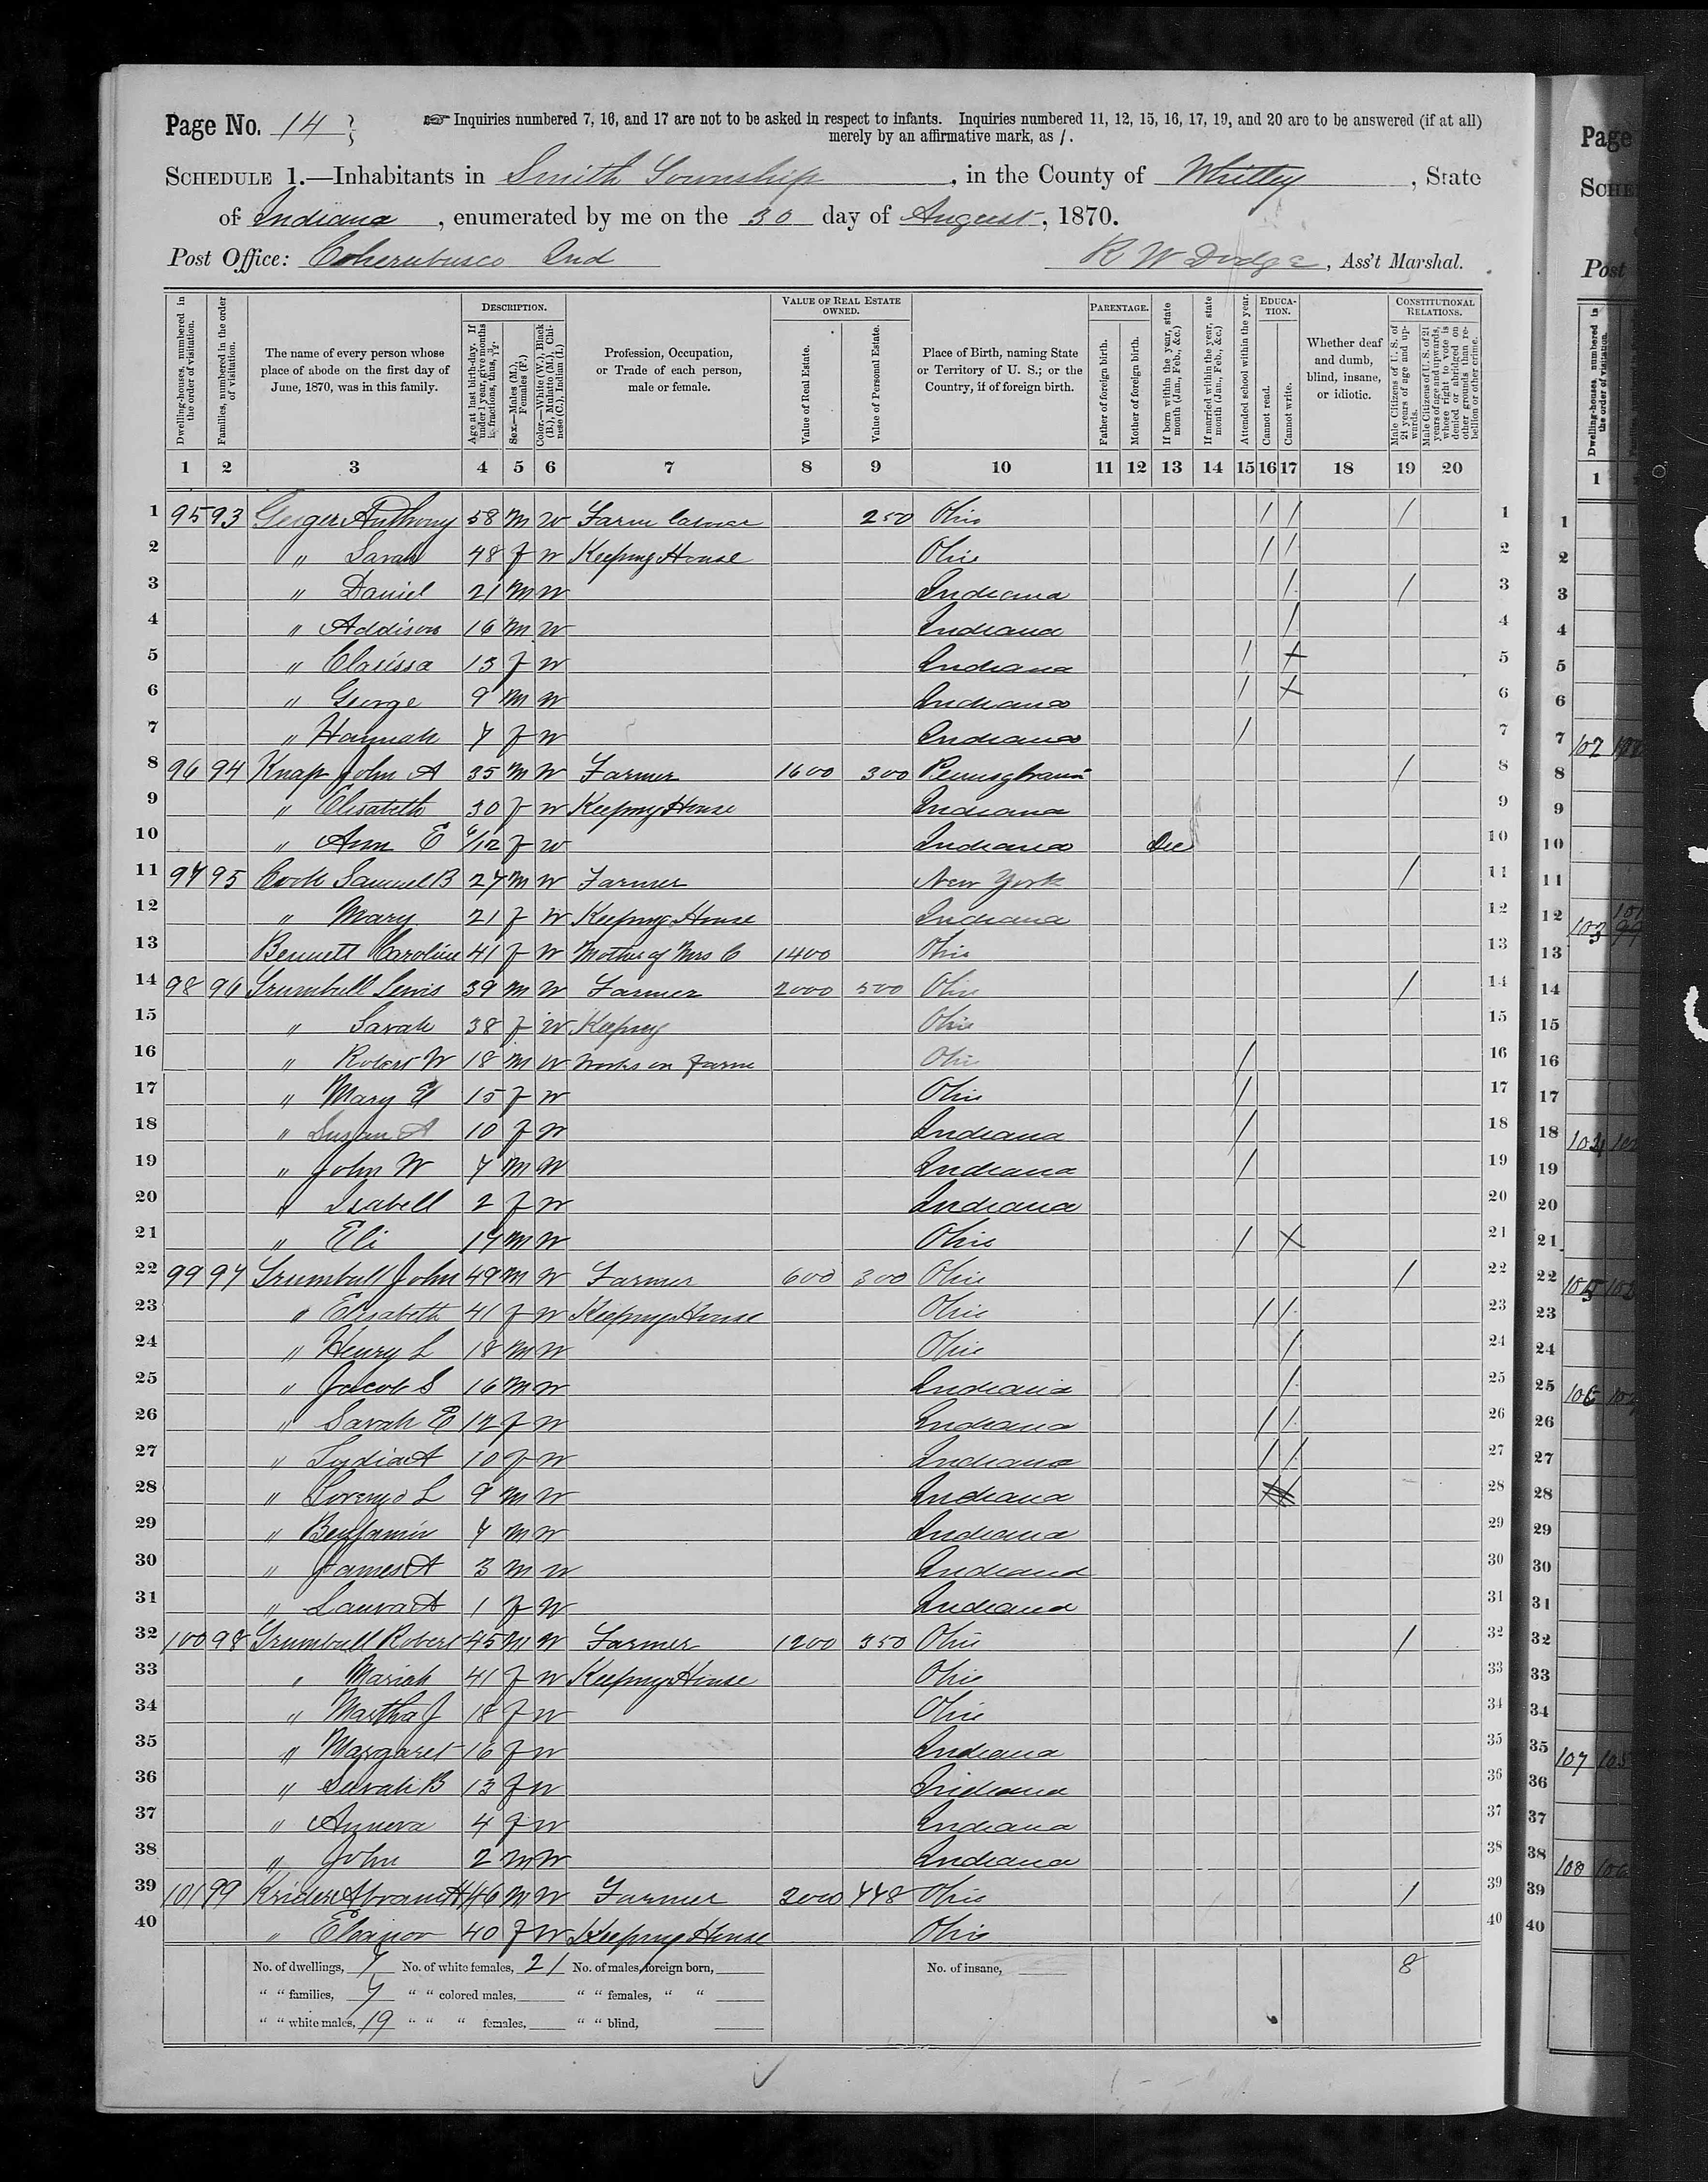 Page No. 14
☞ Inquiries numbered 7, 16, and 17 are not to be asked in respect to infants. Inquiries numbered 11, 12, 15, 16, 17, 19, and 20 are to be answered (if at all)
merely by an affirmative mark, as /.
SCHEDULE 1.—Inhabitants in Smith Township, in the County of Whitley, State
of Indiana, enumerated by me on the 30 day of August, 1870.
Post Office: Coherubusco Ind
R W Dodge, Ass't Marshal.
Dwelling-houses, numbered in the order of visitation.
Families, numbered in the order of visitation.
The name of every person whose place of abode on the first day of June, 1870, was in this family.
DESCRIPTION.
Age at last birth-day. If under 1 year, give months in fractions, thus, 3/12.
Sex.—Males (M.), Females (F.)
Color.—White (W.), Black (B.), Mulatto (M.), Chinese (C.), Indian (I.)
Profession, Occupation, or Trade of each person, male or female.
VALUE OF REAL ESTATE OWNED.
Value of Real Estate.
Value of Personal Estate.
Place of Birth, naming State or Territory of U. S.; or the Country, if of foreign birth.
PARENTAGE.
Father of foreign birth.
Mother of foreign birth.
If born within the year, state month (Jan., Feb., &c.)
If married within the year, state month (Jan., Feb., &c.)
Attended school within the year.
EDUCATION.
Cannot read.
Cannot write.
Whether deaf and dumb, blind, insane, or idiotic.
CONSTITUTIONAL RELATIONS.
Male Citizens of U. S. of 21 years of age and upwards.
Male Citizens of U. S. of 21 years of age and upwards, whose right to vote is denied or abridged on other grounds than rebellion or other crime.
1 2 3 4 5 6 7 8 9 10 11 12 13 14 15 16 17 18 19 20
1 95 93 Geiger Anthony 58 M W Farm laborer 250 Ohio / / / 1
2 " Sarah 48 F W Keeping House Ohio / / 2
3 " Daniel 21 M W Indiana / / 3
4 " Addison 16 M W Indiana / 4
5 " Clarissa 13 F W Indiana / 5
6 " George 9 M W Indiana / 6
7 " Hannah 7 F W Indiana / 7
8 96 94 Knap John A 35 M W Farmer 1600 300 Pennsylvania / 8
9 " Elisabeth 30 F W Keeping House Indiana 9
10 " Ann E 6/12 F W Indiana Dec 10
11 97 95 Cook Samuel B 27 M W Farmer New York / 11
12 " Mary 21 F W Keeping House Indiana 12
13 Bennett Caroline 41 F W Mother of Mrs C 1400 Ohio 13
14 98 96 Trumbull Lewis 39 M W Farmer 2000 500 Ohio / 14
15 " Sarah 38 F W Keeping Ohio 15
16 " Robert W 18 M W Works on Farm Ohio / 16
17 " Mary E 15 F W Ohio / 17
18 " Susan A 10 F W Indiana / 18
19 " John W 7 M W Indiana / 19
20 " Isabell 2 F W Indiana 20
21 " Eli M W Ohio / 21
22 99 97 Trumbull John 49 M W Farmer 600 300 Ohio / 22
23 " Elisabeth 41 F W Keeping House Ohio / / 23
24 " Henry L 18 M W Ohio / 24
25 " Jacob S 16 M W Indiana / 25
26 " Sarah E 12 F W Indiana / / 26
27 " Lydia A 10 F W Indiana / / 27
28 " Lorenzo L 9 M W Indiana 28
29 " Benjamin 7 M W Indiana 29
30 " James A 3 M W Indiana 30
31 " Laura A 1 F W Indiana 31
32 100 98 Trumbull Robert 45 M W Farmer 1200 350 Ohio / 32
33 " Mariah 41 F W Keeping House Ohio 33
34 " Martha J 18 F W Ohio 34
35 " Margaret 16 F W Indiana 35
36 " Sarah B 13 F W Indiana 36
37 " Annera 4 F W Indiana 37
38 " John 2 M W Indiana 38
39 101 99 Krider Abram H 46 M W Farmer 2000 448 Ohio / 39
40 " Eleanor 40 F W Keeping House Ohio 40
No. of dwellings, 7 No. of white females, 21 No. of males, foreign born, No. of insane, 8
" " families, 7 " " colored males, " " females, " "
" " white males, 19 " " " females, " " blind,
Page
SCHE
Post
Dwelling-houses, numbered in the order of visitation.
1
1
2
3
4
5
6
7 102
8
9
10
11
12 103
13
14
15
16
17
18 104
19
20
21
22 105
23
24
25 106
26
27
28
29
30
31
32
33
34
35 107 105
36
37
38 108 106
39
40